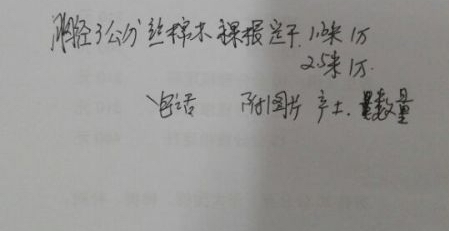 胸径3公分丝棉木裸根报定干.1.8米1万
2.5米1万.
电话 附图片 产土.数量